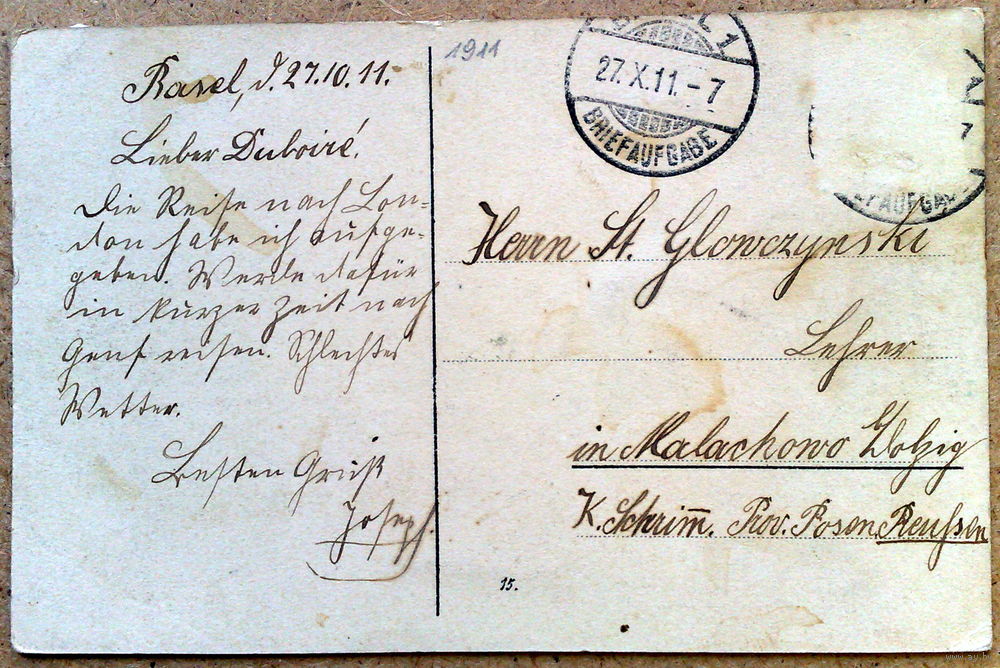 Basel, d. 27.10.11.
Lieber Duboiré.
Die Reise nach Lon-
don habe ich aufge-
geben. Werde dafür
in kurzer Zeit nach
Genf reisen. Schlechtes
Wetter.
Besten Gruß
Joseph.
1911
1
27.X.11.-7
BRIEFAUFGABE
7
Herrn St. Glowczynski
Lehrer
in Malachowo Dolzig
K. Schrim̅. Prov. Posen, Preußen
15.